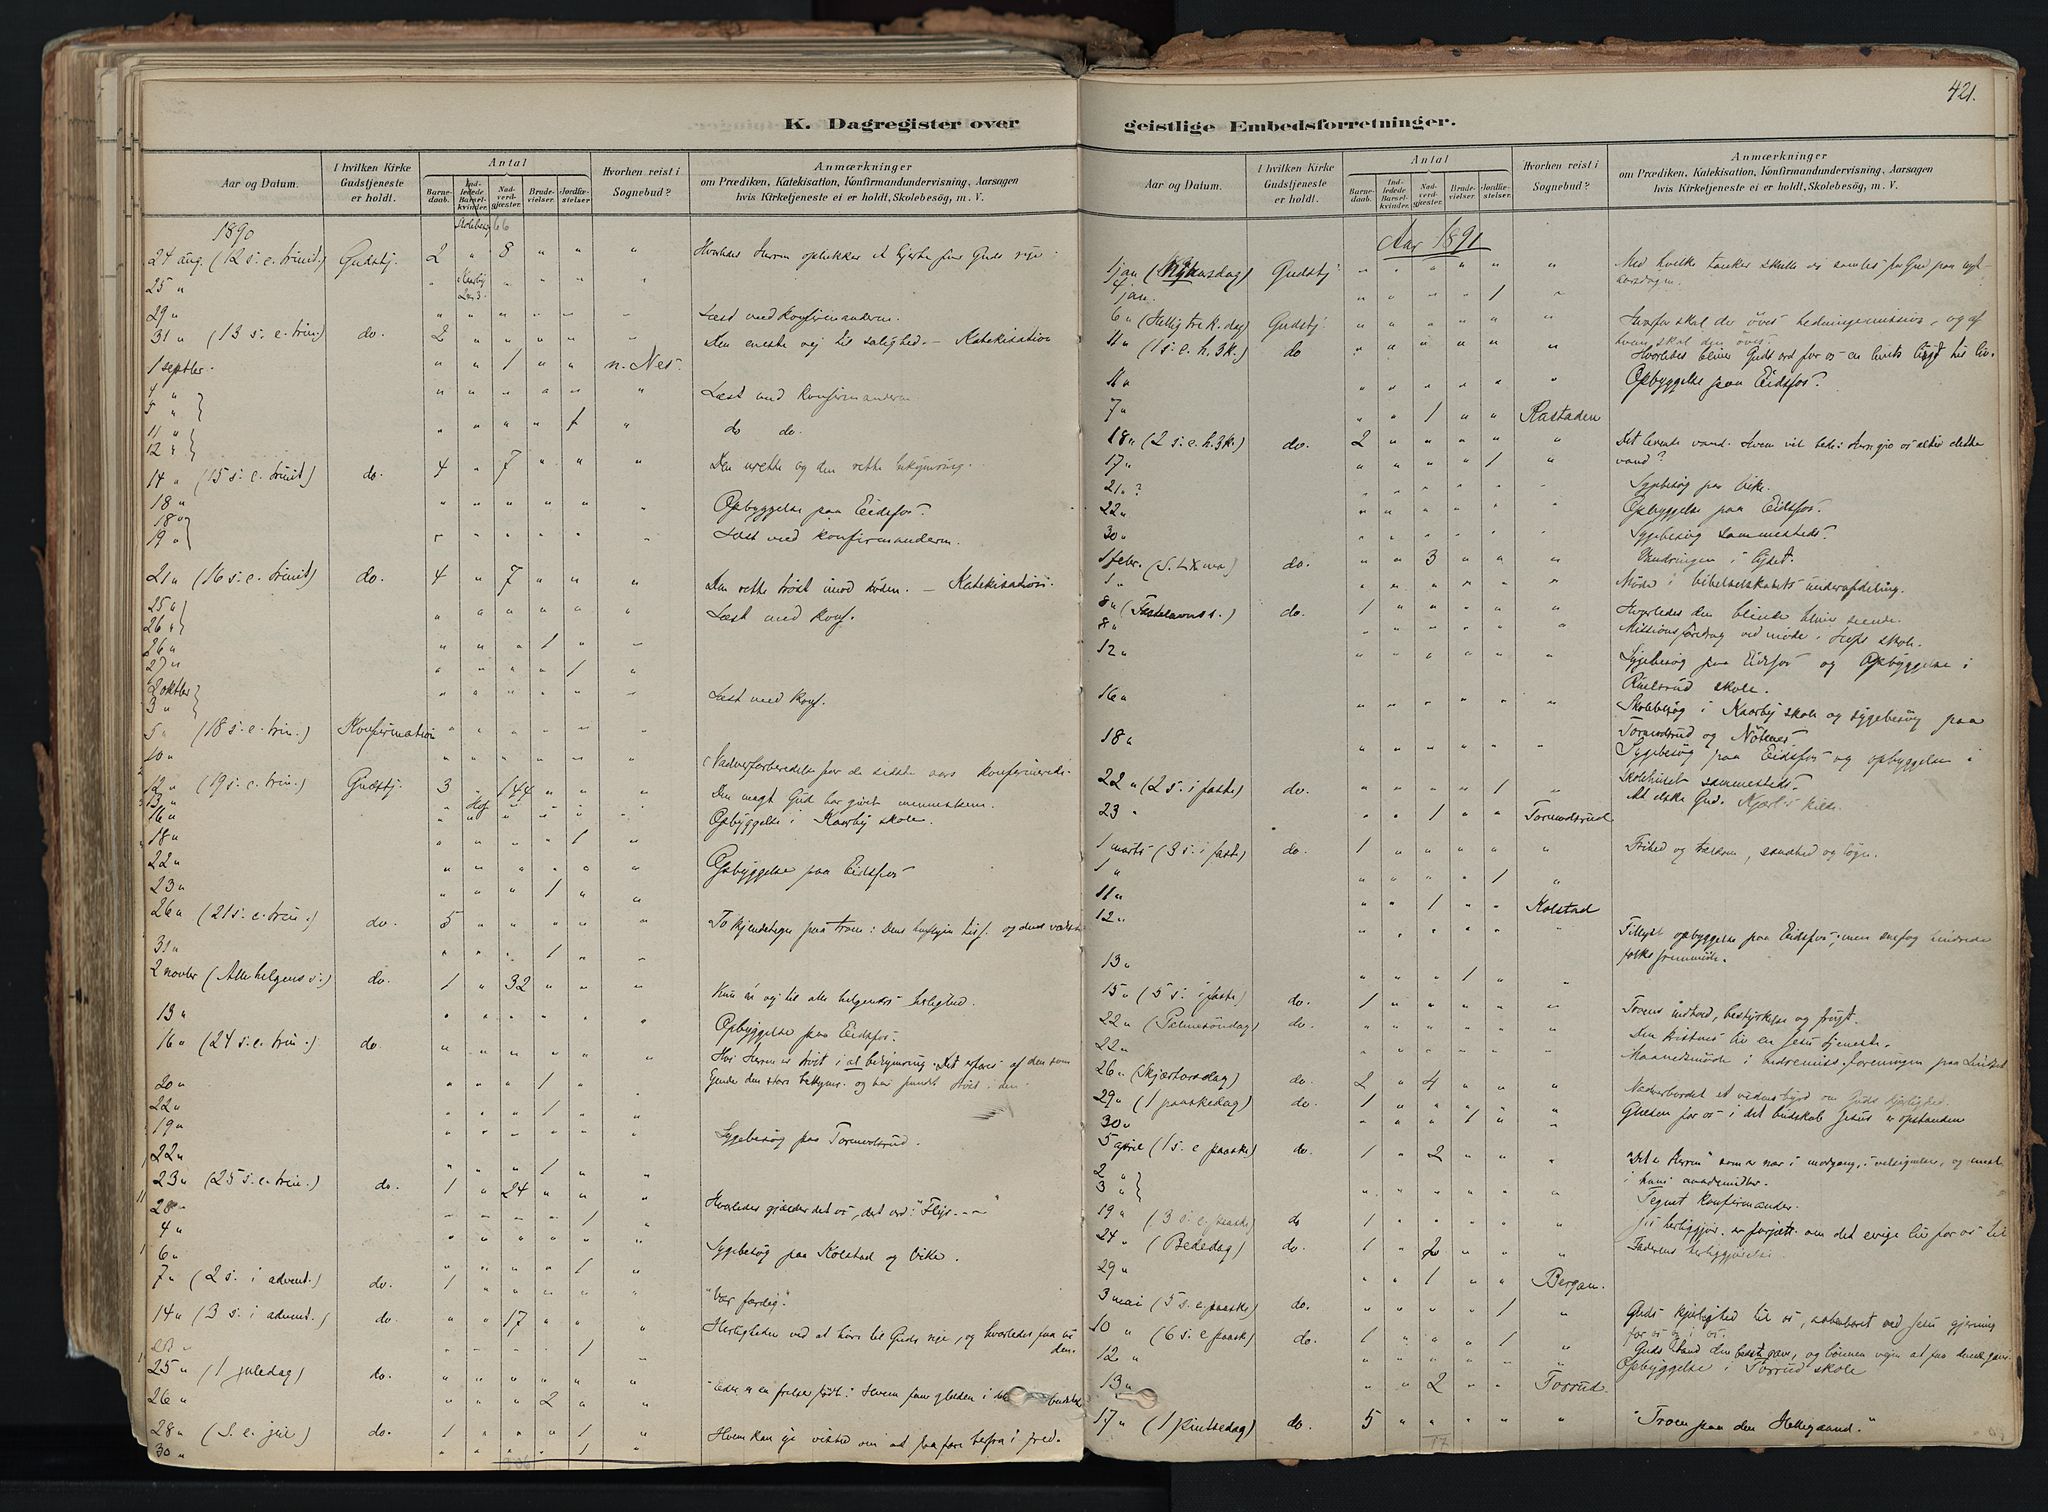 421.
K. Dagregister over geistlige Embedsforretninger.
Aar og Datum. I hvilken Kirke Gudstjeneste er holdt. Antal Barnedaab. Indledede Barselkvinder. Nadverdgjæster. Brudevielser. Jordfæstelser. Hvorhen reist i Sognebud? Anmærkninger om Prædiken, Katekisation, Konfirmandundervisning, Aarsagen hvis Kirketjeneste ei er holdt, Skolebesøg, m. V.
1890
24 aug. (12 s. e. trinit.) Gudstj. 2 " 8 " " " Hvorledes Herren oplukker et hjerte for Guds rige
25 "
29 " " " " " " " Læst med Konfirmanderne.
31 " (13 s. e. trin.) do. 2 " " " " " Den eneste vej til salighed. — Katekisation
1 septbr. " " 1 " " n. Nes.
4 "
5 " " " " " " " Læst med Konfirmanderne
11 "
12 " " " " " 1 " do do.
14 " (15 s. e. trinit) do. 4 " 7 " " " Den urette og den rette bekymring.
18 " " " " " " " Opbyggelse paa Eidsfos.
18 "
19 " " " " " " " Læst med Konfirmanderne.
21 " (16 s. e. trinit) do. 4 " 7 " " " Den rette trøst imod døden. — Katekisation.
25 "
26 " " " " " " " Læst med Konf.
26 " " " " 1 " "
27 " " " " " 1 "
2 oktbr
3 " " " " " " " Læst med Konf.
5 " (18 s. e. trin.) Konfirmation " " " " " "
10 " " " " " " " Nadverforberedelse for de sidste aars konfirmerede.
12 " (19 s. e. trin.) Gudstj. 3 " 144 " " " Den magt Gud har givet menneskene.
13 " " Hof " " " "
16 " " " " " " " Opbyggelse i Kaarby skole.
18 " " " " " 1 "
22 " " " " " " " Opbyggelse paa Eidsfos
23 " " " " 1 " "
26 " (21 s. e. trin.) do. 5 " " " " " To kjendetegn paa troen:
31 " " " " 1 " "
2 novbr (Alle helgens s.) do. 1 " 32 " " " Kun én vej til alle helgenes herlighed.
13 " " " " " " " Opbyggelse paa Eidsfos.
16 " (24 s. e. trin.) do. " " " " " " Hos Herren er trøst i al bekymring. Det erfares af den som
20 " " " " 1 " " kjender den store bekymr. og har fundet trøst i den.
22 " " " " 1 " "
19 " " " " " " " Sygebesøg paa Tormodsrud.
22 " " " " 1 " "
23 " (25 s. e. trin.) do. 1 " 24 " " " Hvorledes gjælder det os, det ord: "Flys - - -"
28 " " " " " 1 "
4 " " " " " " " Sygebesøg paa Kolstad og Vike.
6 " " " " " 1 "
7 " (2 s. i advent.) do. 1 " " " " " "Vær færdig."
14 " (3 s. i advent.) do. " " 17 " " " Herligheden ved at høre til Guds rige, og hvorledes faa vi
" " " " 1 " den.
25 " (1 juledag) do. " " " " " "
26 " " " " 2 " "
28 " (S. e. jul) do. 1 " " " 1 "
30 " " " " " 1 "
Aar og Datum. I hvilken Kirke Gudstjeneste er holdt. Antal Barnedaab. Indledede Barselkvinder. Nadverdgjæster. Brudevielser. Jordfæstelser. Hvorhen reist i Sognebud? Anmærkninger om Prædiken, Katekisation, Konfirmandundervisning, Aarsagen hvis Kirketjeneste ei er holdt, Skolebesøg, m. V.
Aar 1891
1 jan (Nytaarsdag) Gudstj. " " " " " " Med hvilke tanker skulle vi samles for Gud paa nyt-
4 jan. " " " " 1 " aarsdagen.
6 " (Hellig tre k. dag) Gudstj. " " " " " " Hvorfor skal der øves hedningemission, og af
hvem skal den øves.
11 " (1 s. e. h. 3 k.) do " " " " " " Hvorledes bliver Guds ord for os en livets lugt til liv.
11 " " " " " " " Opbyggelse paa Eidsfos.
7 " " " 1 " " Rastaden
18 " (2 s. e. h. 3 k.) do. 2 " " " " " Det levende vand.
17 " " " " " 1 " vand?
21 " ? " " " " " " Sygebesøg paa Vike.
22 " " " " " " " Opbyggelse paa Eidsfos.
30 " " " " " " " Sygebesøg sammesteds.
1 febr. (S. LXma) do. " " 3 " " "
1 " " " " " " " Møde i bibelselskabets underafdeling.
8 " (Fastelavns s.) do. 1 " " " " " Hvorledes den blinde bliver seende.
8 " " " " " " " Missionsforedrag ved møde i Hofs skole.
12 " " " " " " " Sygebesøg paa Eidsfos og Opbyggelse i
skole.
16 " " " " " " " Skolebesøg i Kaarby skole og sygebesøg paa
Tormodsrud og Nötnes
18 " " " " " " " Sygebesøg paa Eidsfos og opbyggelse i
Skolehuset sammesteds.
22 " (2 s. i faste) do. " " " " 1 " At elske Gud.
23 " " " 1 " " Tormodsrud
1 marts (3 s. i faste) do. 1 " " " " " Frihed og trældom, sandhed og løgn.
1 " " " " " 1 "
11 " " " 1 " " Kolstad
12 " " " " " " " Tillyst opbyggelse paa Eidsfos, men snefog hindrede
folks fremmøde.
13 " " " " 1 " "
15 " (5 s. i faste) do. 1 " " " " " Troens indhold, bestyrkelse og frugt.
22 " (Palmesøndag) do. " " " " " " Den kristnes liv en Jesu tjeneste.
22 " " " " " " " Maanedsmøde i indremiss.foreningen paa
26 " (Skjærtorsdag) do. 2 " 4 " " " Nadverbordet et vidnesbyrd om Guds kjærlighed.
29 " (1 paaskedag) do. 1 " " " " " Glæden for os i det budskab Jesus er opstanden
30 " " " " 1 " "
5 april (1 s. e paaske) do. 1 " 2 " " " "Det er Herren" som er nær i modgang, i velsignelse, og mest
i hans naademidler.
2 "
3 " " " " " " " Tegnet konfirmander.
19 " (3 s. e. paaske) do 1 " " " " "
24 " (Bededag) do. 1 " 2 " " " Faderens herliggjørelse
29 " " " 1 " " Bergan.
3 mai (5 s. e. paaske) do. " " " " 1 " Guds kjærlighed til os, aabenbaret ved Jesu gjerning
for os og i os.
10 " (6 s. e paask) do. 1 " " " 1 " Guds aand den bedste gave, og bønnen vejen at faa denne gave.
12 " " " " " " " Opbyggelse i Torrud skole
13 " " " 2 " " Torrud.
17 " (1 pintsedag) do. 5 " " " " " "Troen paa den Helligaand."
17